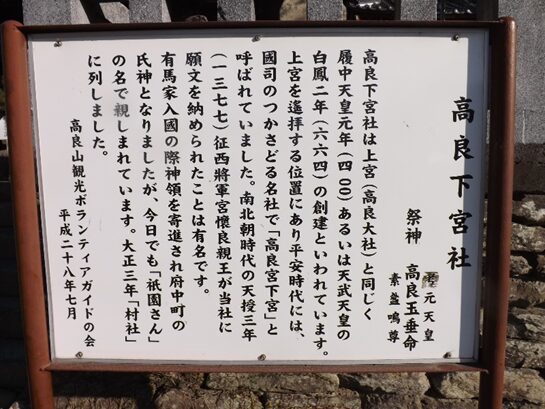 高良下宮社
祭神
元天皇
高良玉垂命
素盞鳴尊
高良下宮社は上宮（高良大社）と同じく
履中天皇元年（四〇〇）あるいは天武天皇の
白鳳二年（六六四）の創建といわれています。
上宮を遙拝する位置にあり平安時代には、
國司のつかさどる名社で「高良宮下宮」と
呼ばれていました。南北朝時代の天授三年
（一三七七）征西将軍宮懐良親王が当社に
願文を納められたことは有名です。
有馬家入國の際神領を寄進され府中町の
氏神となりましたが、今日でも「祇園さん」
の名で親しまれています。大正三年「村社」
に列しました。
高良山観光ボランティアガイドの会
平成二十八年七月